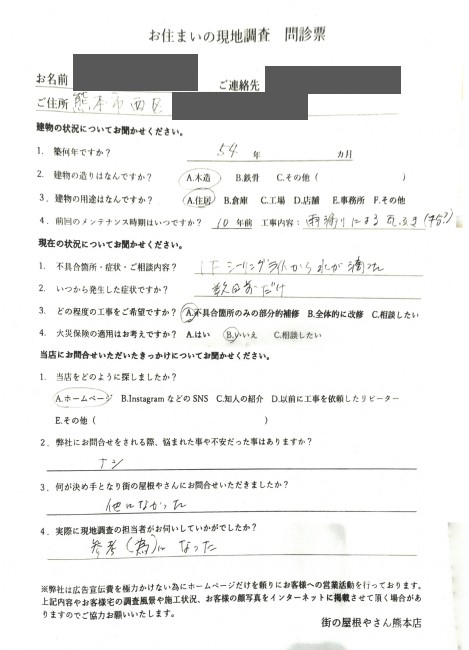 お住まいの現地調査 問診票
お名前
ご連絡先
ご住所 熊本市西区
建物の状況についてお聞かせください。
1. 築何年ですか? 54 年 カ月
2. 建物の造りはなんですか? A.木造 B.鉄骨 C.その他( )
3. 建物の用途はなんですか? A.住居 B.倉庫 C.工場 D.店舗 E.事務所 F.その他
4. 前回のメンテナンス時期はいつですか? 10 年前 工事内容: 雨漏りによる
現在の状況についてお聞かせください。
1. 不具合箇所・症状・ご相談内容? 1F シーリングライトから水が滴った
2. いつから発生した症状ですか? 数日前だけ
3. どの程度の工事をご希望ですか? A.不具合箇所のみの部分的補修 B.全体的に改修 C.相談したい
4. 火災保険の適用はお考えですか? A.はい B.いいえ C.相談したい
当店にお問合せいただいたきっかけについてお聞かせください。
1. 当店をどのように探しましたか?
A.ホームページ B.Instagram などの SNS C.知人の紹介 D.以前に工事を依頼したリピーター
E.その他( )
2. 弊社にお問合せをされる際、悩まれた事や不安だった事はありますか?
ナシ
3. 何が決め手となり街の屋根やさんにお問合せいただきましたか?
他になかった
4. 実際に現地調査の担当者がお伺いしていかがでしたか?
参考(為)になった
※弊社は広告宣伝費を極力かけない為にホームページだけを頼りにお客様への営業活動を行っております。
上記内容やお客様宅の調査風景や施工状況、お客様の顔写真をインターネットに掲載させて頂く場合があ
りますのでご協力お願いいたします。
街の屋根やさん熊本店